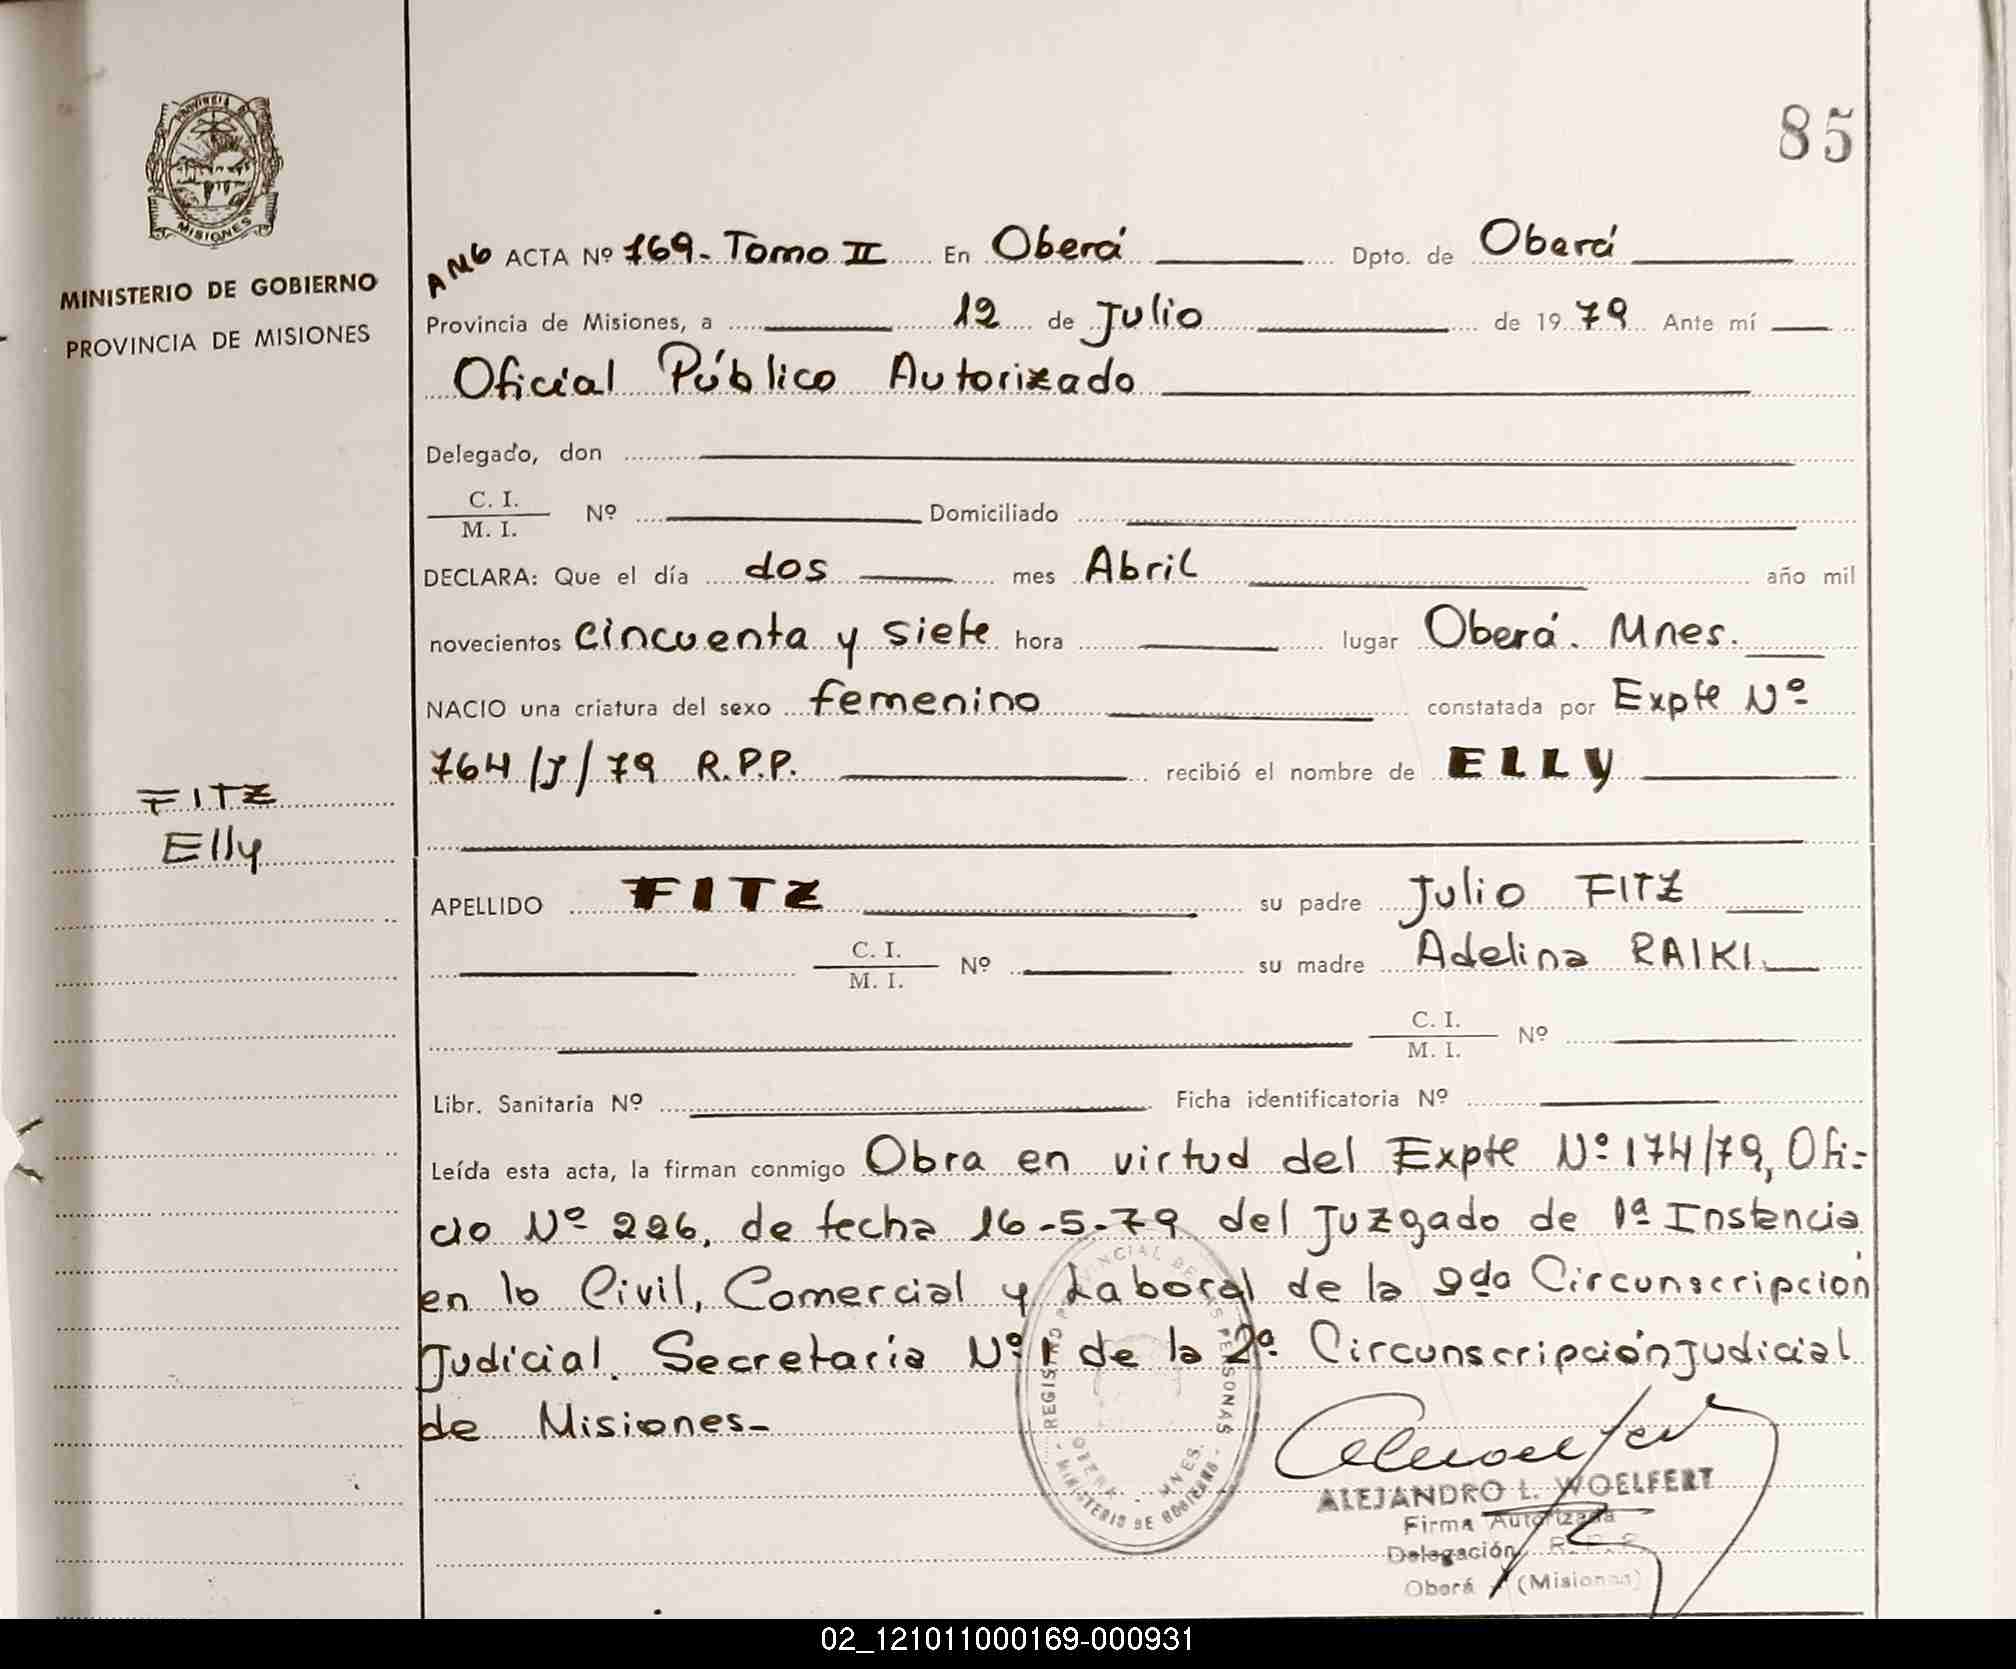 85
PROVINCIA DE
MISIONES
MINISTERIO DE GOBIERNO
PROVINCIA DE MISIONES
ACTA Nº 169- Tomo II En Oberá Dpto. de Oberá
Provincia de Misiones, a 12 de Julio de 19 79 Ante mí
Oficial Público Autorizado
Delegado, don
C. I.
M. I. Nº Domiciliado
DECLARA: Que el día dos mes Abril año mil
novecientos cincuenta y siete hora lugar Oberá. Mnes.
NACIO una criatura del sexo femenino constatada por Expte Nº
764/J/79 R.P.P. recibió el nombre de ELLY
FITZ
Elly
APELLIDO FITZ su padre Julio FITZ
C. I.
M. I. Nº su madre Adelina RAIKI
C. I.
M. I. Nº
Libr. Sanitaria Nº Ficha identificatoria Nº
Leída esta acta, la firman conmigo Obra en virtud del Expte Nº 174/79, Ofi=
cio Nº 226, de fecha 16-5-79 del Juzgado de 1ª Instancia
en lo Civil, Comercial y Laboral de la 2da Circunscripción
Judicial. Secretaría Nº 1 de la 2ª Circunscripción Judicial
de Misiones-
REGISTRO PROVINCIAL DE LAS PERSONAS
OBERA - MNES.
MINISTERIO DE GOBIERNO
ALEJANDRO L. WOELFERT
Firma Autorizada
Delegación R.P.P.
Oberá (Misiones)
02_121011000169-000931